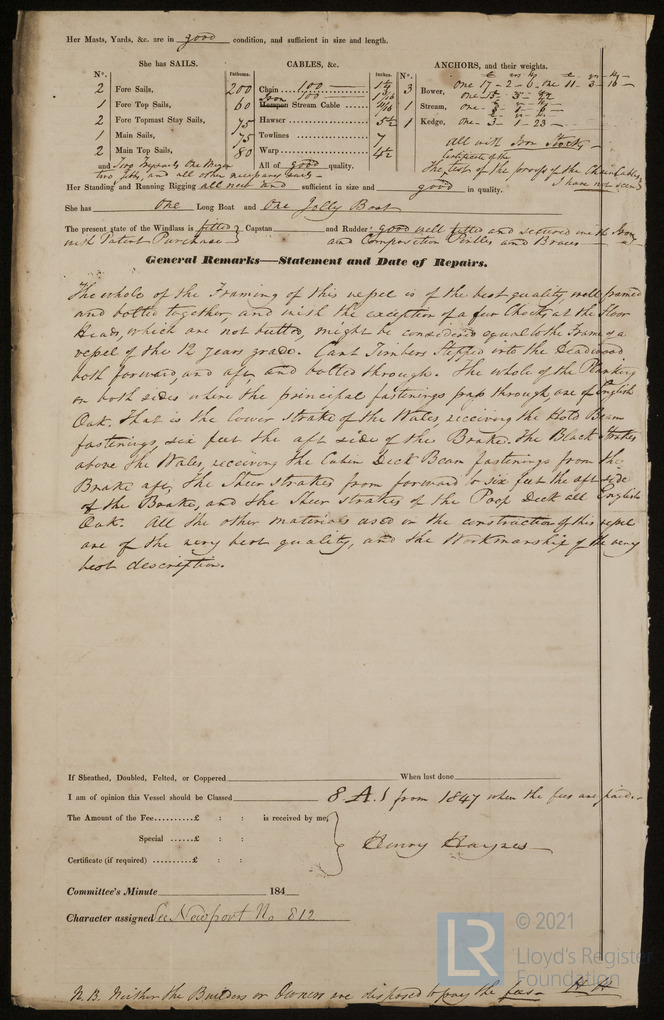 Her Masts, Yards, &c. are in good condition, and sufficient in size and length.
She has SAILS.
CABLES, &c.
ANCHORS, and their weights.
N°. Fathoms. Inches. N°.
2 Fore Sails, 200 Chain 100 3 Bower, one 17-2-6 one 11-3-16
1 Fore Top Sails, 60 Iron Hempen Stream Cable 100
2 Fore Topmast Stay Sails, 75 Hawser 5½ 1 Stream, one
1 Main Sails, 75 Towlines 7 1 Kedge, one 3-1-23
2 Main Top Sails, 80 Warp 4½ all with Iron Stocks
and Two Trysails One Mizen All of good quality. Certificate of the
two Jibbs, and all other necessary sails the test of the proofs of the Chain Cables
I have not seen
Her Standing and Running Rigging all new and sufficient in size and good in quality.
She has One Long Boat and One Jolly Boat
The present state of the Windlass is fitted Capstan and Rudder good well fitted and secured with Iron
with Patent Purchase and Composition Pintles and Braces
General Remarks—Statement and Date of Repairs.
The whole of the Framing of this vessel is of the best quality well framed
and bolted together, and with the exception of a few Chocks, at the Floor
Heads, which are not butted, might be considered equal to the Frame of a
vessel of the 12 years grade. Cant Timbers Stepped into the Deadwood
both forward, and aft, and bolted through. The whole of the Planking
on both sides where the principal fastenings pass through, are of English
Oak. That is the lower strake of the Wales, receiving the Hold Beam
fastenings, six feet the aft side of the Brake. The Black strakes
above the Wales, receiving the Cabin Deck Beam fastenings from the
Brake aft, The Sheer strakes from forward to six feet the aft side
of the Brake, and the Sheer strakes of the Poop Deck all English
Oak. All the other materials used in the construction of this vessel
are of the very best quality, and the Workmanship of the very
best description.
If Sheathed, Doubled, Felted, or Coppered When last done
I am of opinion this Vessel should be Classed 8 A.1 from 1847 when the fees are paid.
The Amount of the Fee..........£ : : is received by me,
Special ......£ : :
Henry Haynes
Certificate (if required) ..........£ : :
Committee's Minute 184
Character assigned See Newport No 812
© 2021
LR
Lloyd's Register
Foundation
N.B. Neither the Builders or Owners are disposed to pay the fees H H